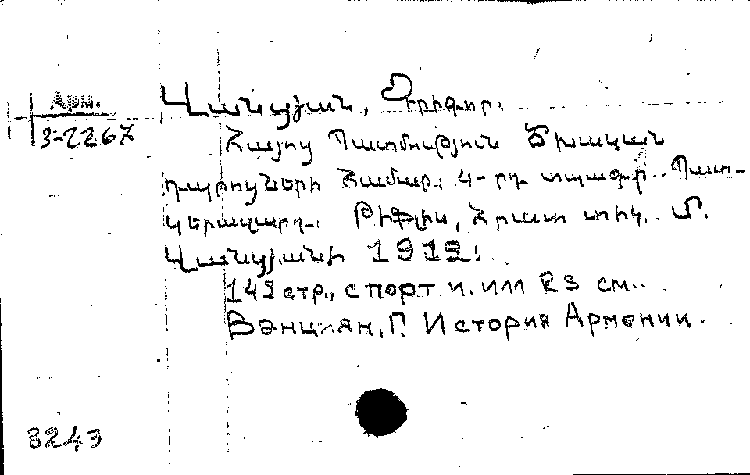 Арм.
3-2267
Վանցյան, Գրիգոր.
Հայոց Պատմություն Ծխական
դպրոցների Համար. 4-րդ տպագր.. Պատ-
կերազարդ. Թիֆլիս, Հրատ տիկ. Մ.
Վանցյանի 1912.
142 стр., с порт и. илл 23 см..
Ванциян, Г. История Армении.
8243